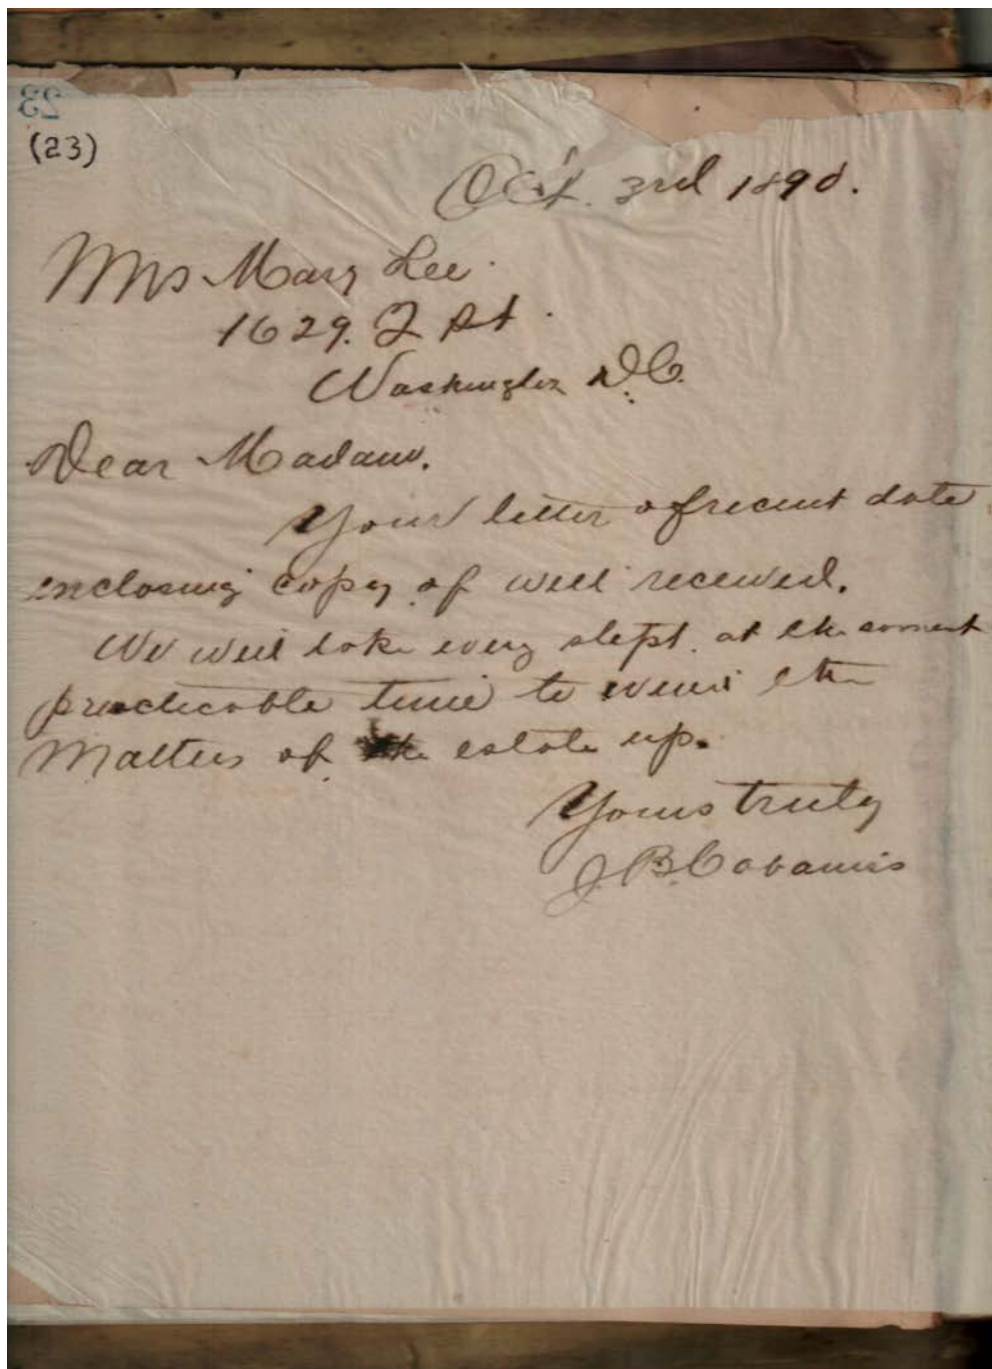 23
(23)
Oct. 3rd 1890.
Mrs Mary Lee.
1629. St.
Washington D.C.
Dear Madam.
Your letter of recent date
enclosing copy of will received.
We will take every stept. at the
practicable time to wind the
Matters of the estate up.
Yours truly
J B Cabaniss